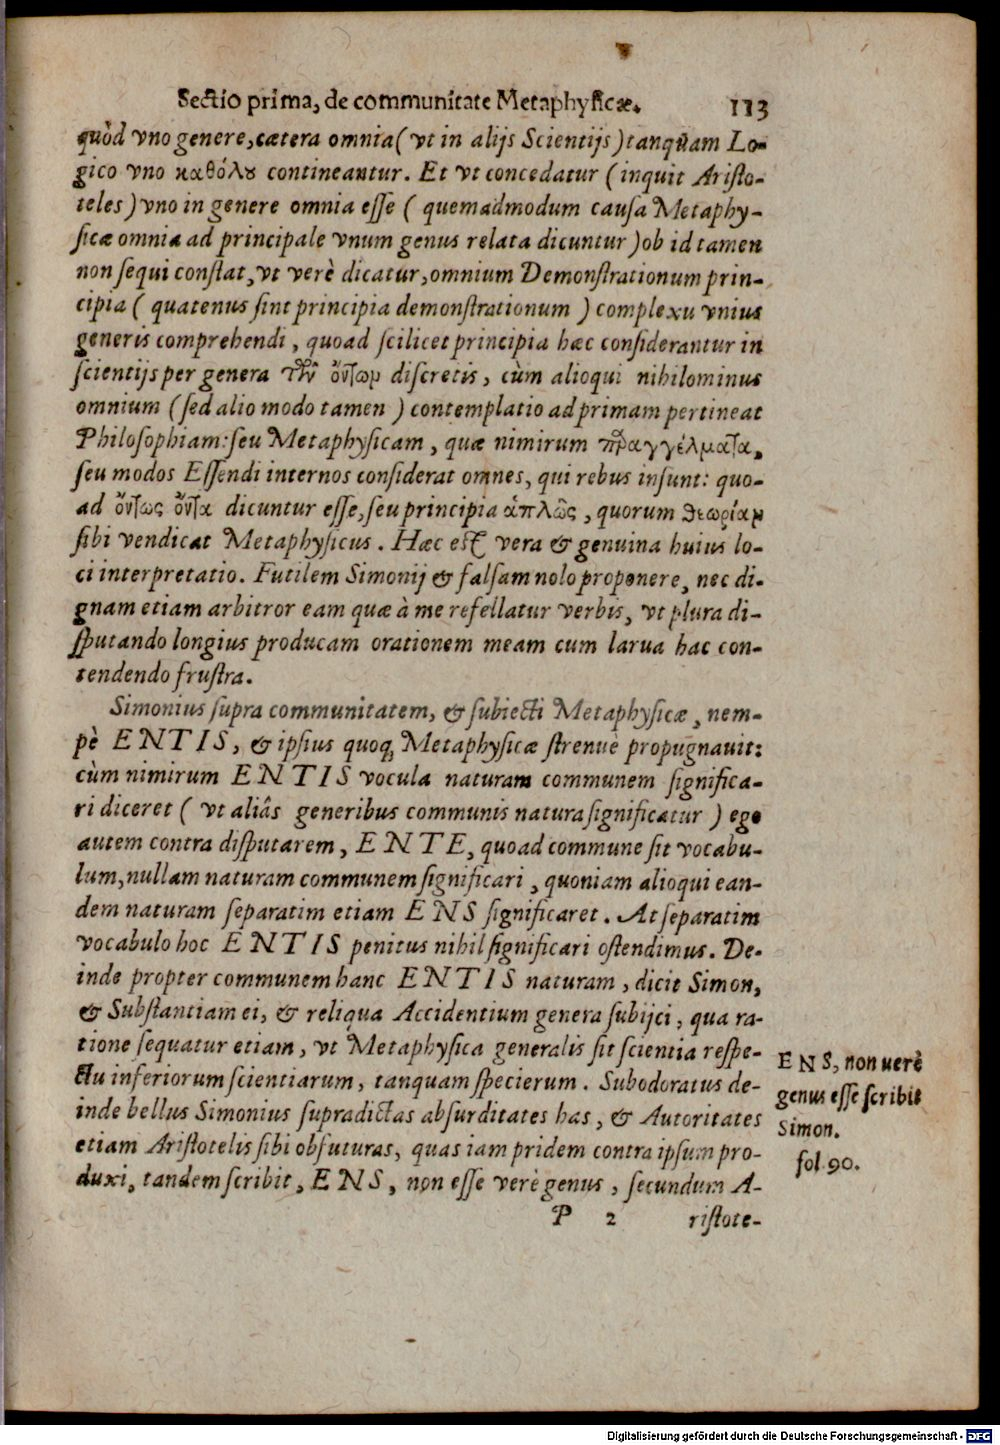 Sectio prima, de communitate Metaphysicæ. 113
quòd vno genere, cætera omnia ( vt in alijs Scientijs ) tanquam Lo-
gico vno καθόλου contineantur. Et vt concedatur ( inquit Aristo-
teles ) vno in genere omnia esse ( quemadmodum causa Metaphy-
sicæ omnia ad principale vnum genus relata dicuntur ) ob id tamen
non sequi constat, vt verè dicatur, omnium Demonstrationum prin-
cipia ( quatenus sint principia demonstrationum ) complexu vnius
generis comprehendi, quoad scilicet principia hæc considerantur in
scientijs per genera τῶν ὄντων discretis, cùm alioqui nihilominus
omnium ( sed alio modo tamen ) contemplatio ad primam pertineat
Philosophiam: seu Metaphysicam, quæ nimirum
seu modos Essendi internos considerat omnes, qui rebus insunt: quo-
ad ὄντως ὄντα dicuntur esse, seu principia ἁπλῶς, quorum θεωρίαν
sibi vendicat Metaphysicus. Hæc est vera & genuina huius lo-
ci interpretatio. Futilem Simonij & falsam nolo proponere, nec di-
gnam etiam arbitror eam quæ à me refellatur verbis, vt plura di-
sputando longius producam orationem meam cum larua hac con-
tendendo frustra.
Simonius supra communitatem, & subiecti Metaphysicæ, nem-
pè ENTIS, & ipsius quoq; Metaphysicæ strenuè propugnauit:
cùm nimirum ENTIS vocula naturam communem significa-
ri diceret ( vt aliâs generibus communis natura significatur ) ego
autem contra disputarem, ENTE, quoad commune sit vocabu-
lum, nullam naturam communem significari, quoniam alioqui ean-
dem naturam separatim etiam ENS significaret. At separatim
vocabulo hoc ENTIS penitus nihil significari ostendimus. De-
inde propter communem hanc ENTIS naturam, dicit Simon,
& Substantiam ei, & reliqua Accidentium genera subijci, qua ra-
tione sequatur etiam, vt Metaphysica generalis sit scientia respe-
ctu inferiorum scientiarum, tanquam specierum. Subodoratus de-
inde bellus Simonius supradictas absurditates has, & Autoritates
etiam Aristotelis sibi obfuturas, quas iam pridem contra ipsum pro-
duxi, tandem scribit, ENS, non esse verè genus, secundum A-
P 2 ristote-
ENS, non verè
genus esse scribit
Simon.
fol. 90.
Digitalisierung gefördert durch die Deutsche Forschungsgemeinschaft - DFG